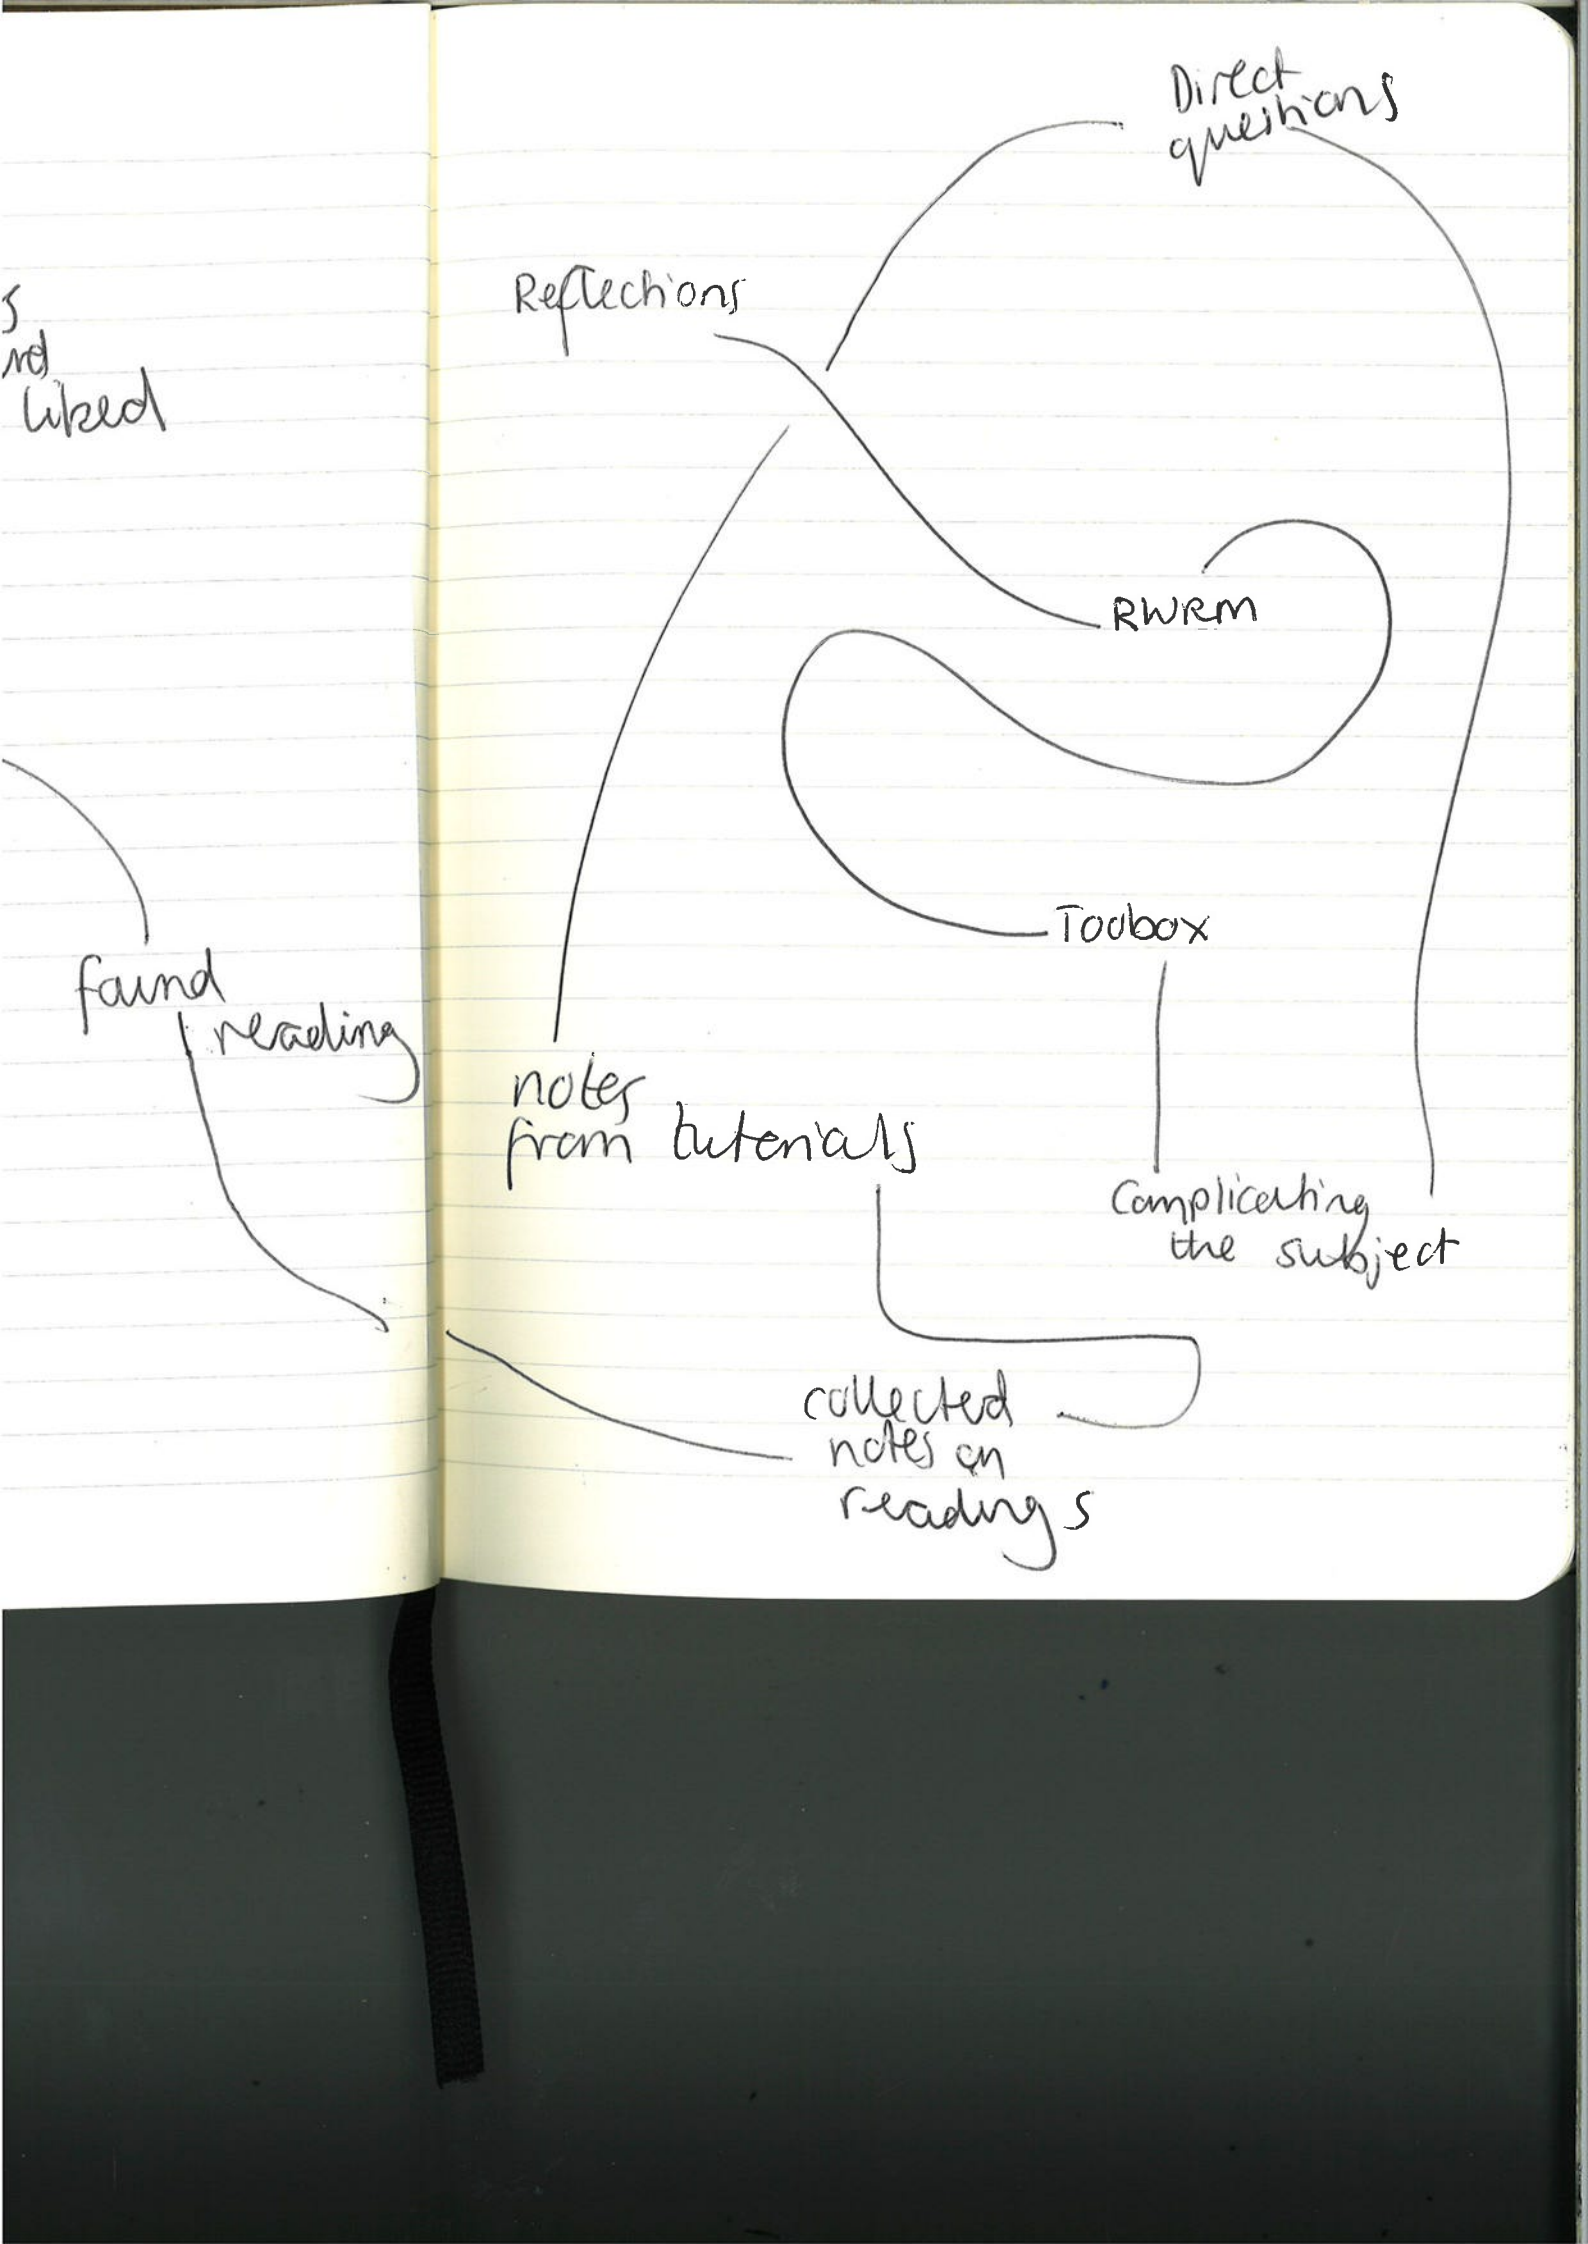 liked
found
reading
Direct
questions
Reflections
RWRM
Toolbox
notes
from tutorials
Complicating
the subject
collected
notes on
readings